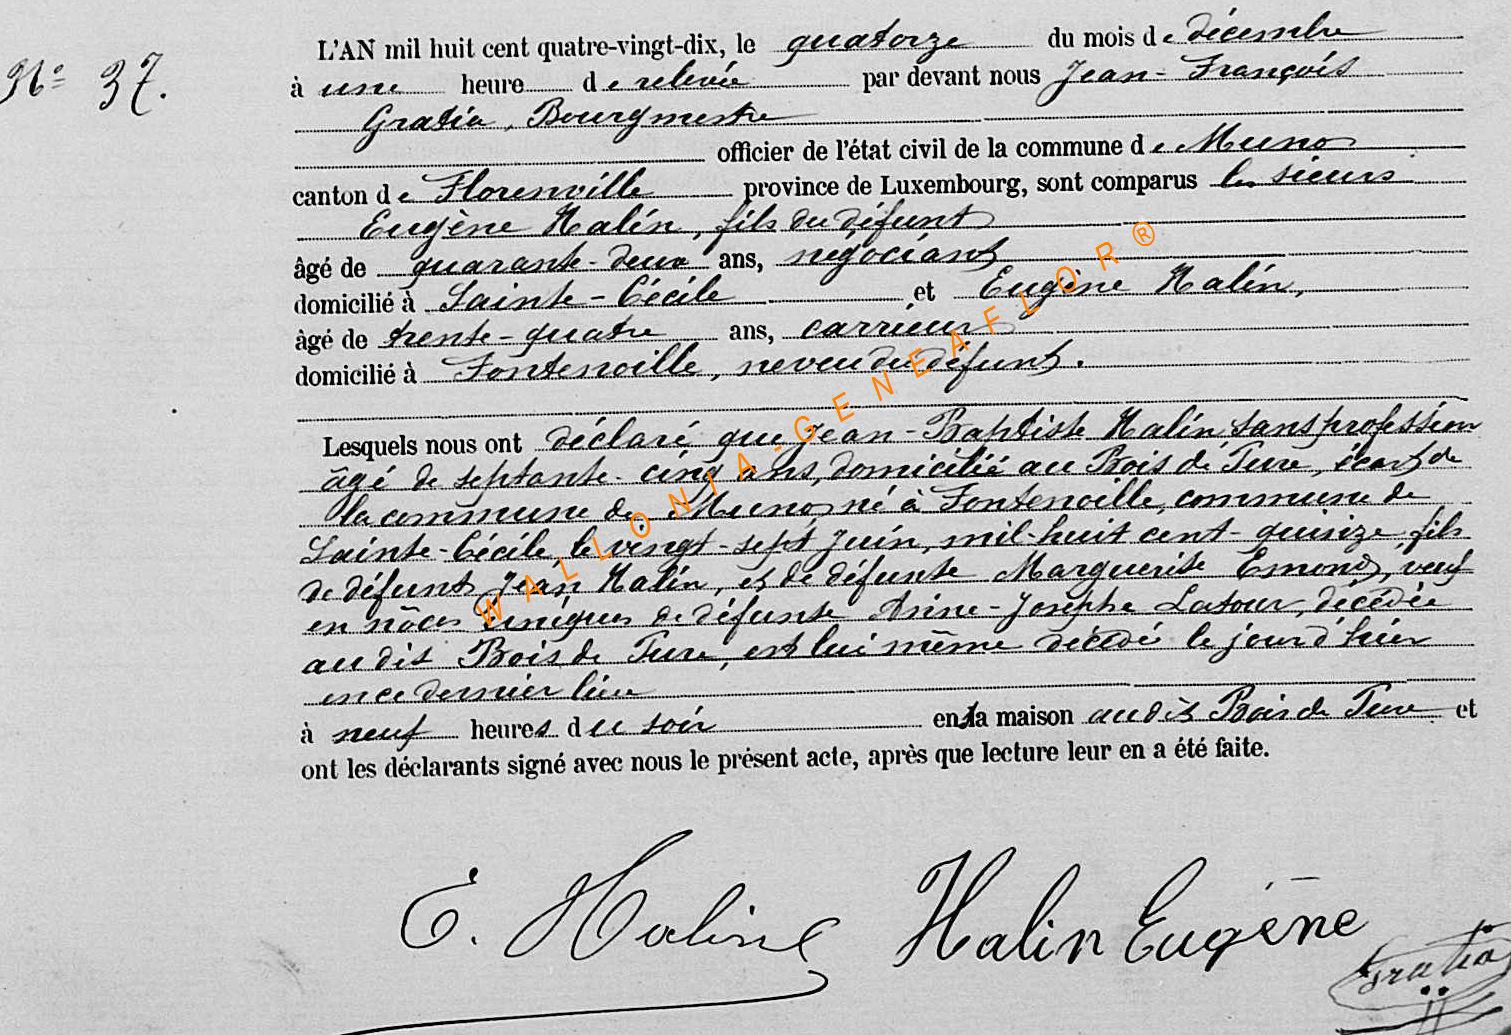 No 37.
L'AN mil huit cent quatre-vingt-dix, le quatorze du mois de décembre
à une heure de relevée par devant nous Jean-François
Gratia, Bourgmestre
officier de l'état civil de la commune de Muno
canton de Florenville province de Luxembourg, sont comparus les sieurs
Eugène Halin, fils du défunt
âgé de quarante-deux ans, négociant
domicilié à Sainte-Cécile et Eugène Halin,
âgé de trente-quatre ans, carrieur
domicilié à Fontenoille, neveu du défunt.
Lesquels nous ont déclaré que Jean-Baptiste Halin sans profession
âgé de septante-cinq ans, domicilié au Bois de Ture, écart de
la commune de Muno, né à Fontenoille, commune de
Sainte-Cécile, le vingt-sept Juin, mil-huit cent-quinze, fils
de défunt Jean Halin, et de défunte Marguerite Emond, veuf
en nôces uniques de défunte Anne-Josèphe Latour, décédée
au dit Bois de Ture, est lui même décédé le jour d'hier
en ce dernier lieu
à neuf heures du soir en sa maison au dit Bois de Ture et
ont les déclarants signé avec nous le présent acte, après que lecture leur en a été faite.
E. Halin Halin Eugène
Gratia
WALLONIA-GENEAFLOR®